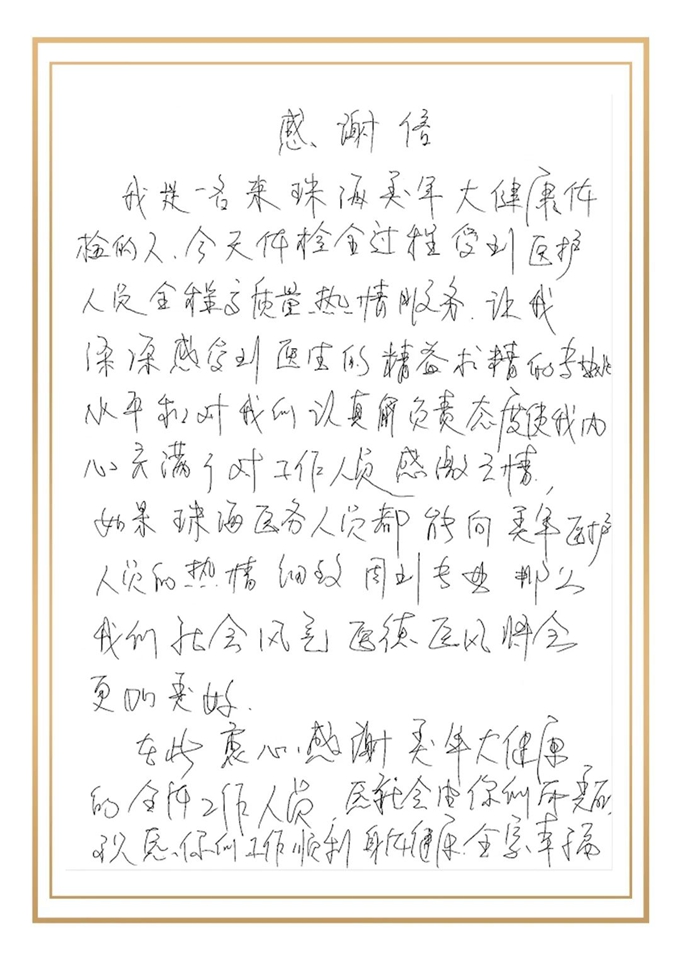 感谢信
我是一名来珠海美年大健康体
检的人.今天体检全过程受到医护
人员全程高质量热情服务.让我
深深感受到医生的精益求精的专业
水平和对我们认真负责态度使我内
心充满了对工作人员感激之情,
如果珠海医务人员都能向美年医护
人员的热情细致周到专业那么
我们社会风气医德医风将会
更加美好.
在此衷心感谢美年大健康
的全体工作人员,因社会由你们而美丽.
祝愿你们工作顺利身体健康.全家幸福